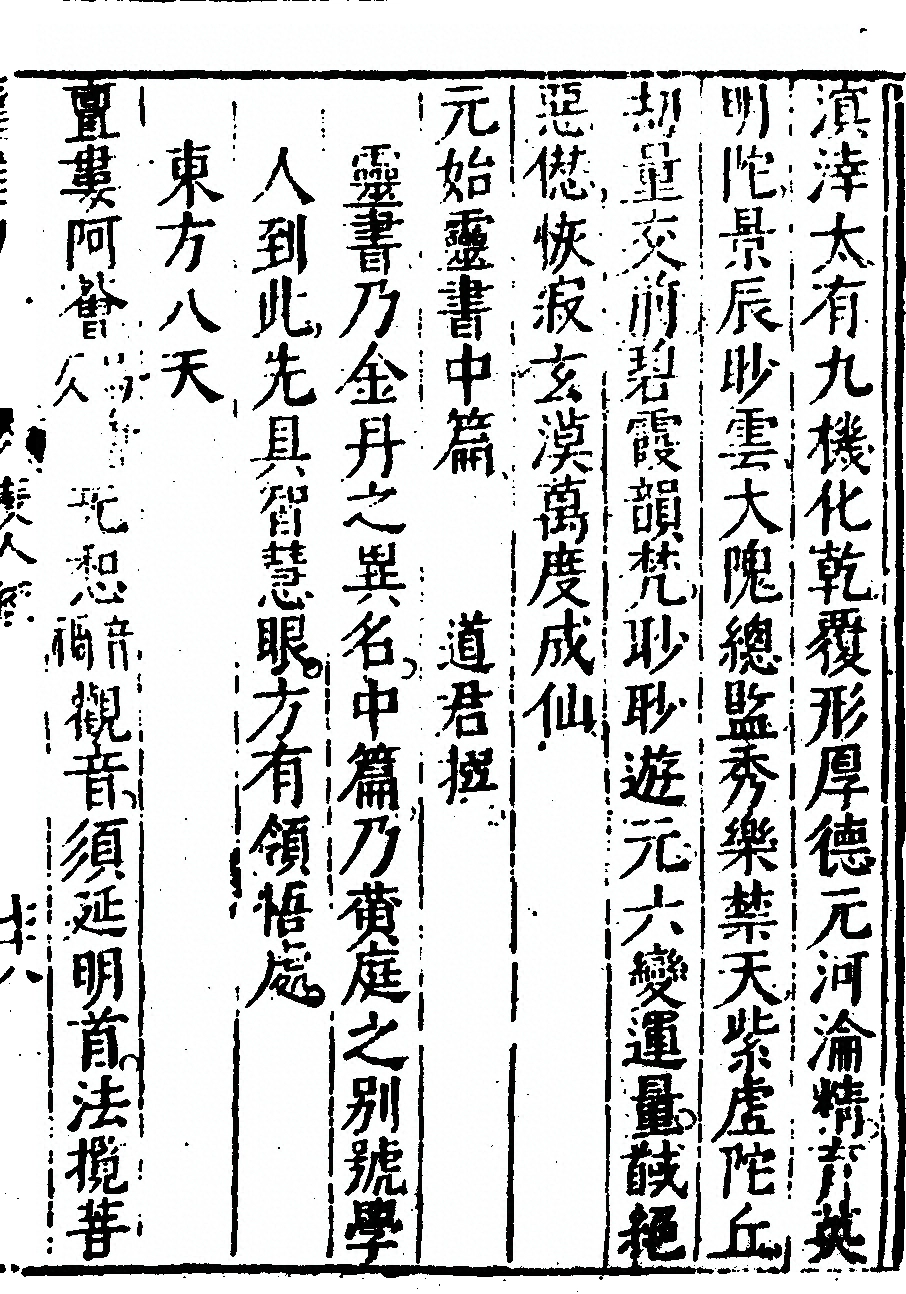 滇涬太有九機化乾覆形厚德元河淪精育英
明陀景辰眇雲大隗總監秀樂禁天紫虛陀丘
劫量交前碧霞韻梵眇眇遊元六變運量馘絕
惡愆恢寂玄漠萬度成仙
元始靈書中篇　道君撰
靈書乃金丹之異名中篇乃黄庭之别號學
人到此先具智慧眼方有領悟處
東方八天
亶婁阿薈无惒觀音須延明首法攬菩
度人經